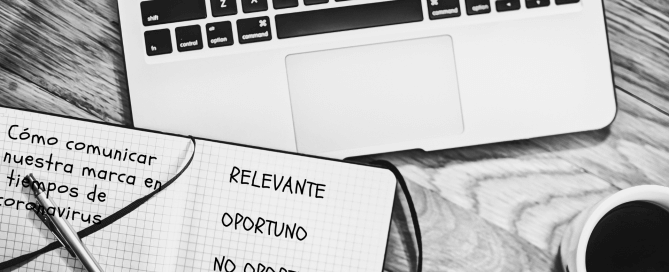 shift
Z
X
⌘
command
option
fn
control
alt
option
⌘
command
Cómo comunicar
nuestra marca en
tiempos de
coronavirus
RELEVANTE
OPORTUNO
NO